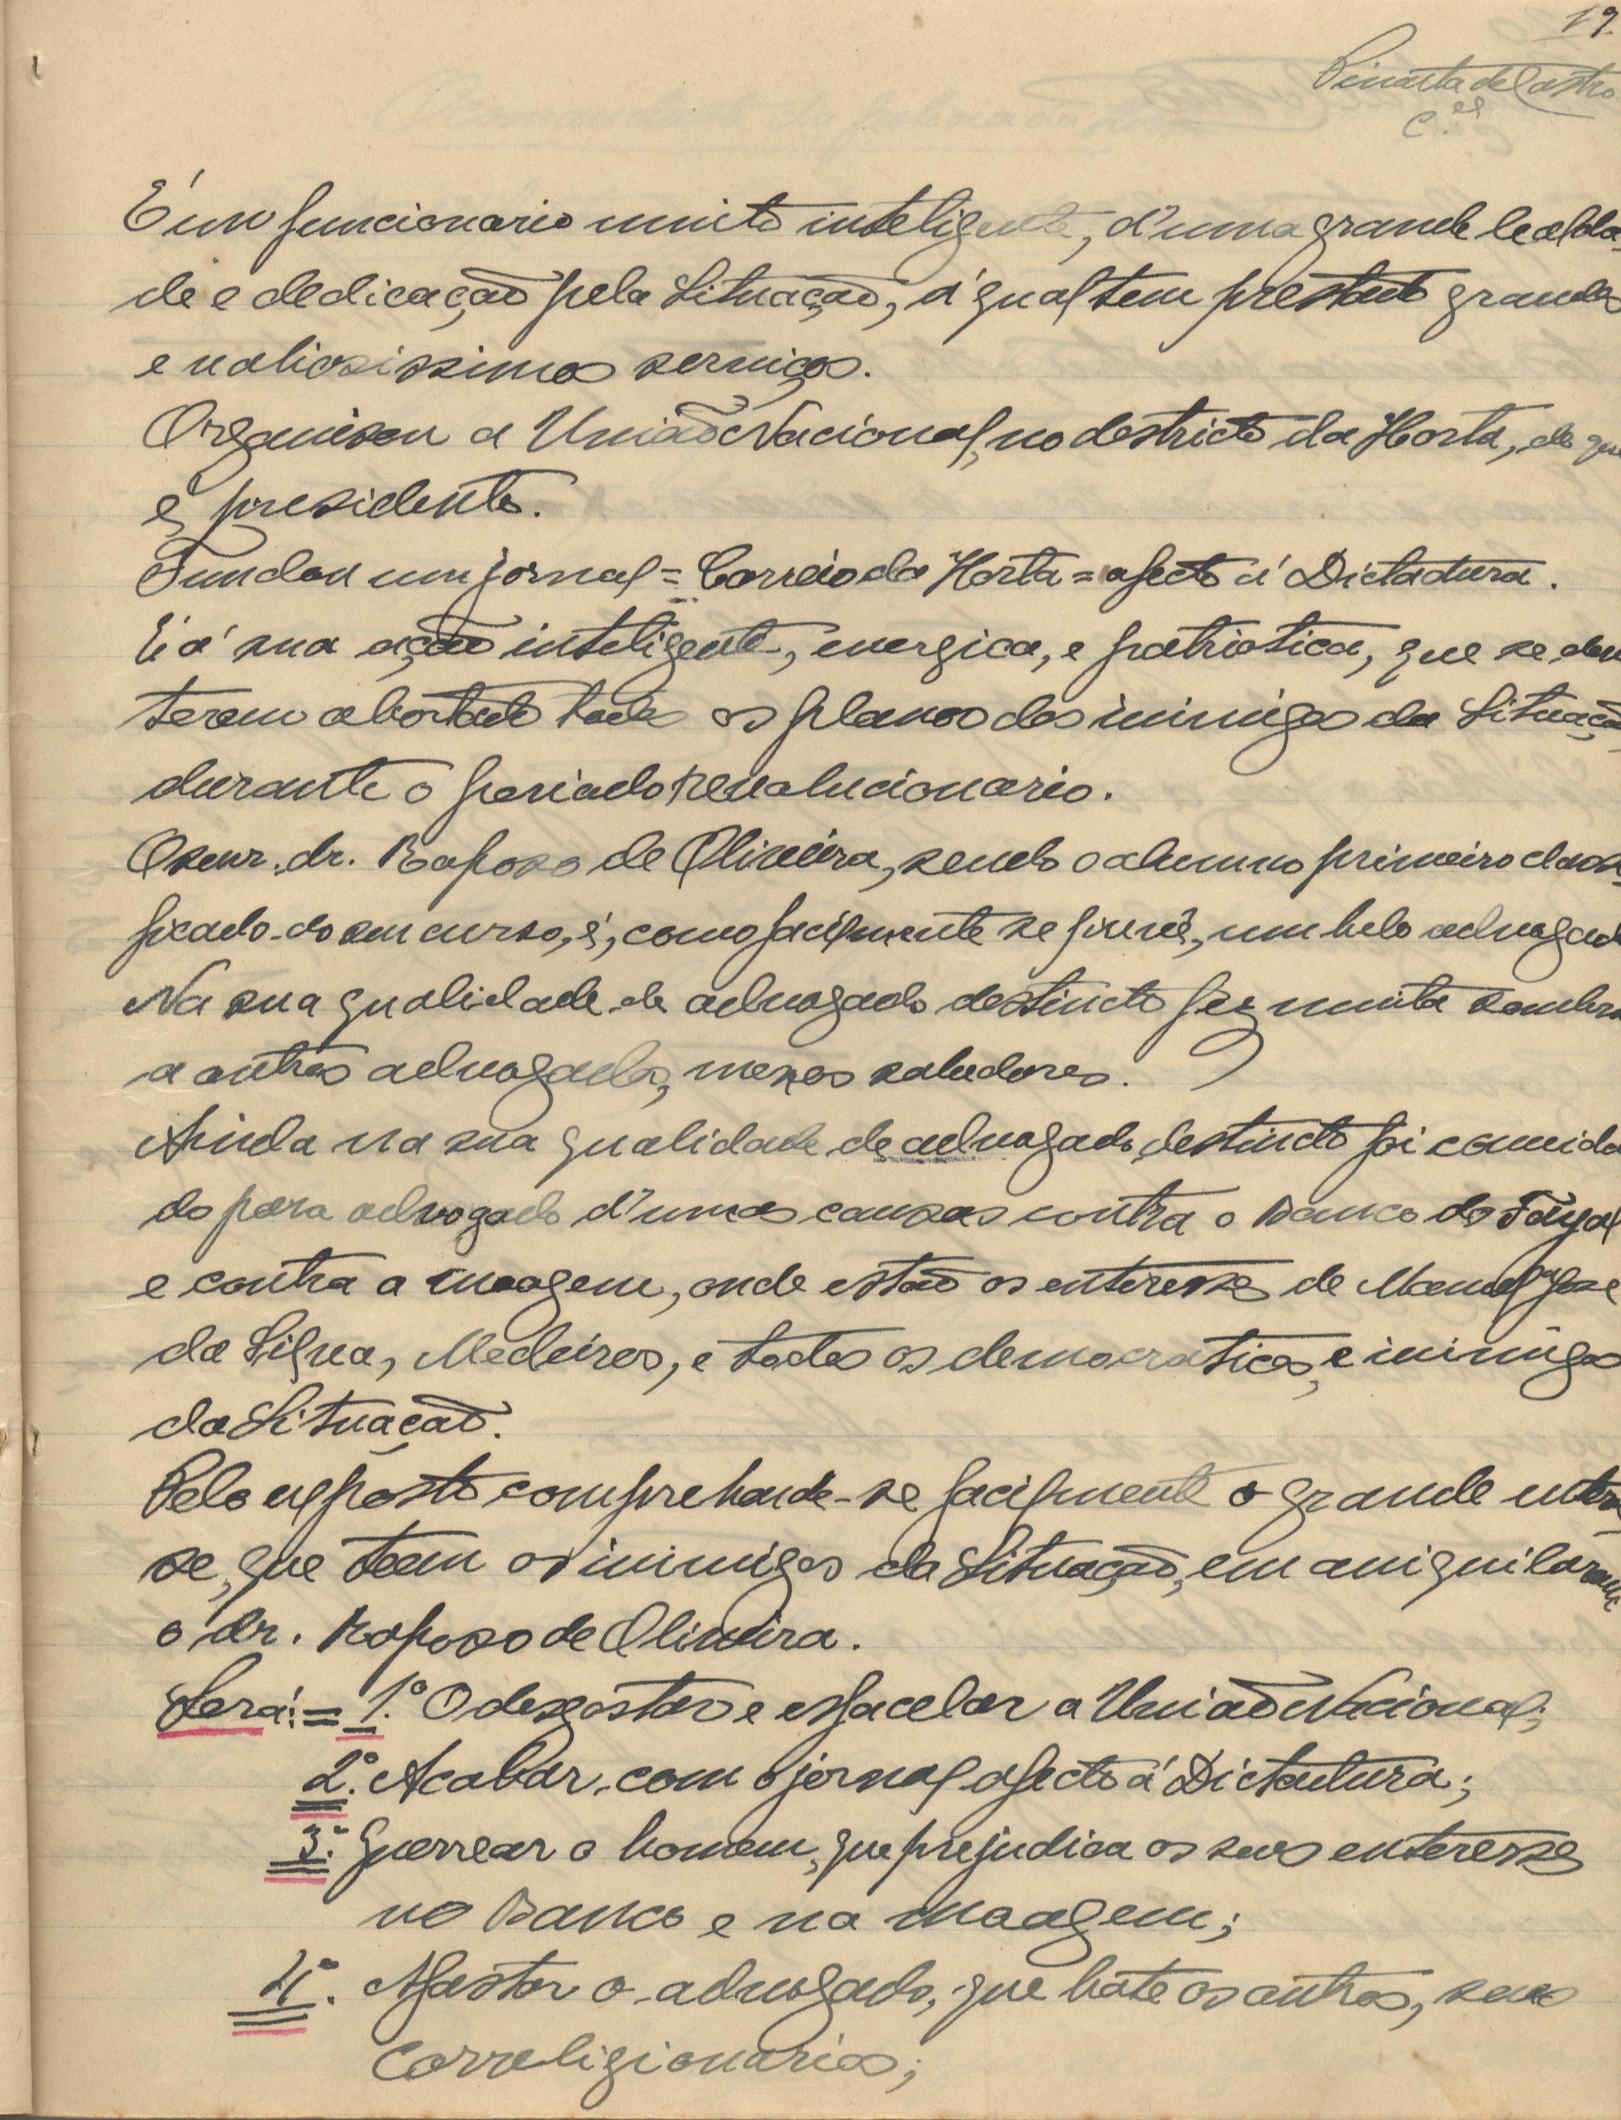 19.
Pimenta de Castro
C.el
É um funcionario muito inteligente, d'uma grande lealda-
de e dedicação pela Situação, á qual tem prestado grandes
e valiosissimos serviços.
Organisou a União Nacional, no destricto da Horta, de que
é presidente.
Fundou um jornal = Correio da Horta = afecto á Dictadura.
É á sua ação inteligente, energica, e patriotica, que se deve
terem abortado todos os planos dos inimigos da Situação,
durante o periodo revolucionario.
O senr. dr. Raposo de Oliveira, sendo o alumno primeiro classi-
ficado do seu curso, é, como facilmente se prevê, um belo advogado
Na sua qualidade de advogado destincto fez muita sombra
a outros advogados, menos sabedores.
Ainda na sua qualidade de advogado destincto foi convida
do para advogado d'umas causas contra o Banco do Fayal
e contra a moagem, onde estão os enteresses de Manuel José
da Silva, Medeiros, e todos os democraticos, e inimigos
da Situação.
Pelo exposto comprehende-se facilmente o grande interes
se, que teem os inimigos da Situação, em aniquilarem
o dr. Raposo de Oliveira.
Será: = 1.º O desgostar e esfacelar a União Nacional;
2.º Acabar com o jornal afecto á Dictadura;
3.º Guerrear o homem, que prejudica os seus enteresses
no Banco e na moagem;
4.º Afastar o advogado, que bate os outros, seus
correligionarios;